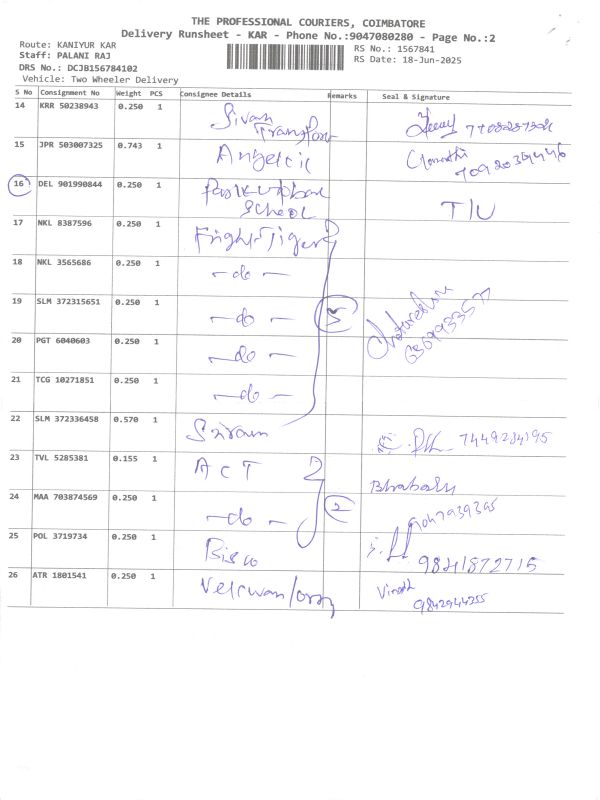 THE PROFESSIONAL COURIERS, COIMBATORE
Delivery Runsheet - KAR - Phone No.:9047080280 - Page No.:2
Route: KANIYUR KAR
RS No.: 1567841
Staff: PALANI RAJ
RS Date: 18-Jun-2025
DRS No.: DCJB156784102
Vehicle: Two Wheeler Delivery
S No Consignment No Weight PCS Consignee Details Remarks Seal & Signature
14 KRR 50238943 0.250 1 Sivan
Transport
15 JPR 503007325 0.743 1 Angelic
16 DEL 901990844 0.250 1 School T/U
17 NKL 8387596 0.250 1 Fright Tiger
18 NKL 3565686 0.250 1 -do-
19 SLM 372315651 0.250 1 -do- 5
20 PGT 6040603 0.250 1 -do-
21 TCG 10271851 0.250 1 -do-
22 SLM 372336458 0.570 1 Sriram 7449284195
23 TVL 5285381 0.155 1 ACT
24 MAA 703874569 0.250 1 -do- 2
25 POL 3719734 0.250 1 Bisco 9841872715
26 ATR 1801541 0.250 1 Vinoth
9842944255